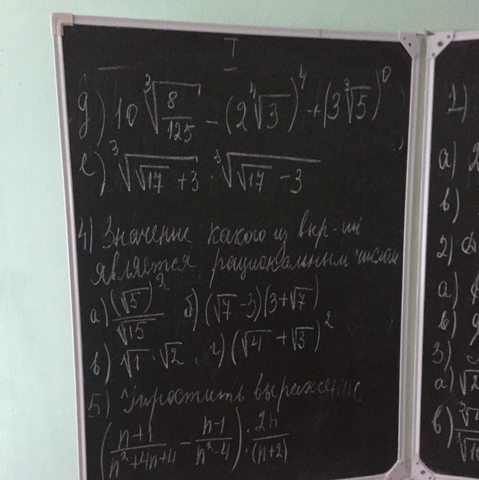 I
д) 10 ∛(8/125) - (2 ∜3)^4 + (3 ∛5)^0
е) ∛(√17 + 3) · ∛(√17 - 3)
4) Значение какого из выр-ий
является рациональным числом
а) (√5)^2/√15 б) (√7 - 3)(3 + √7)
в) √1 · √2 г) (√4 + √3)^2
5) Упростить выражение
((n+1)/(n²+4n+4) - (n-1)/(n²-4)) : 2n/(n+2)
1)
а) 2
в)
2)
а)
в)
3)
а) √2
в)